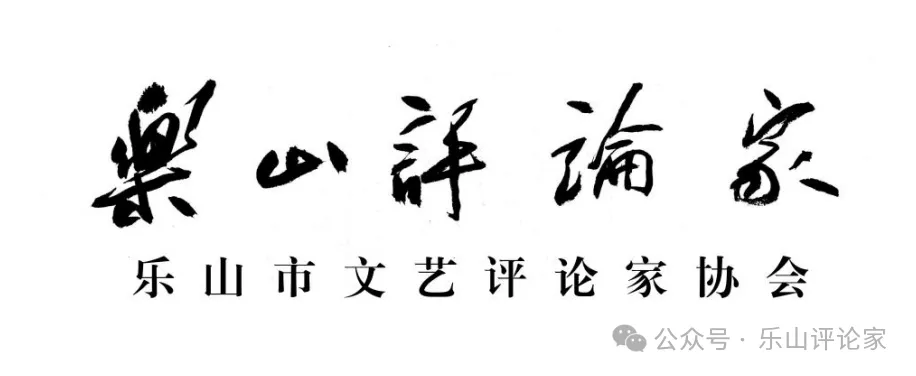 樂山評論家
乐山市文艺评论家协会
公众号·乐山评论家